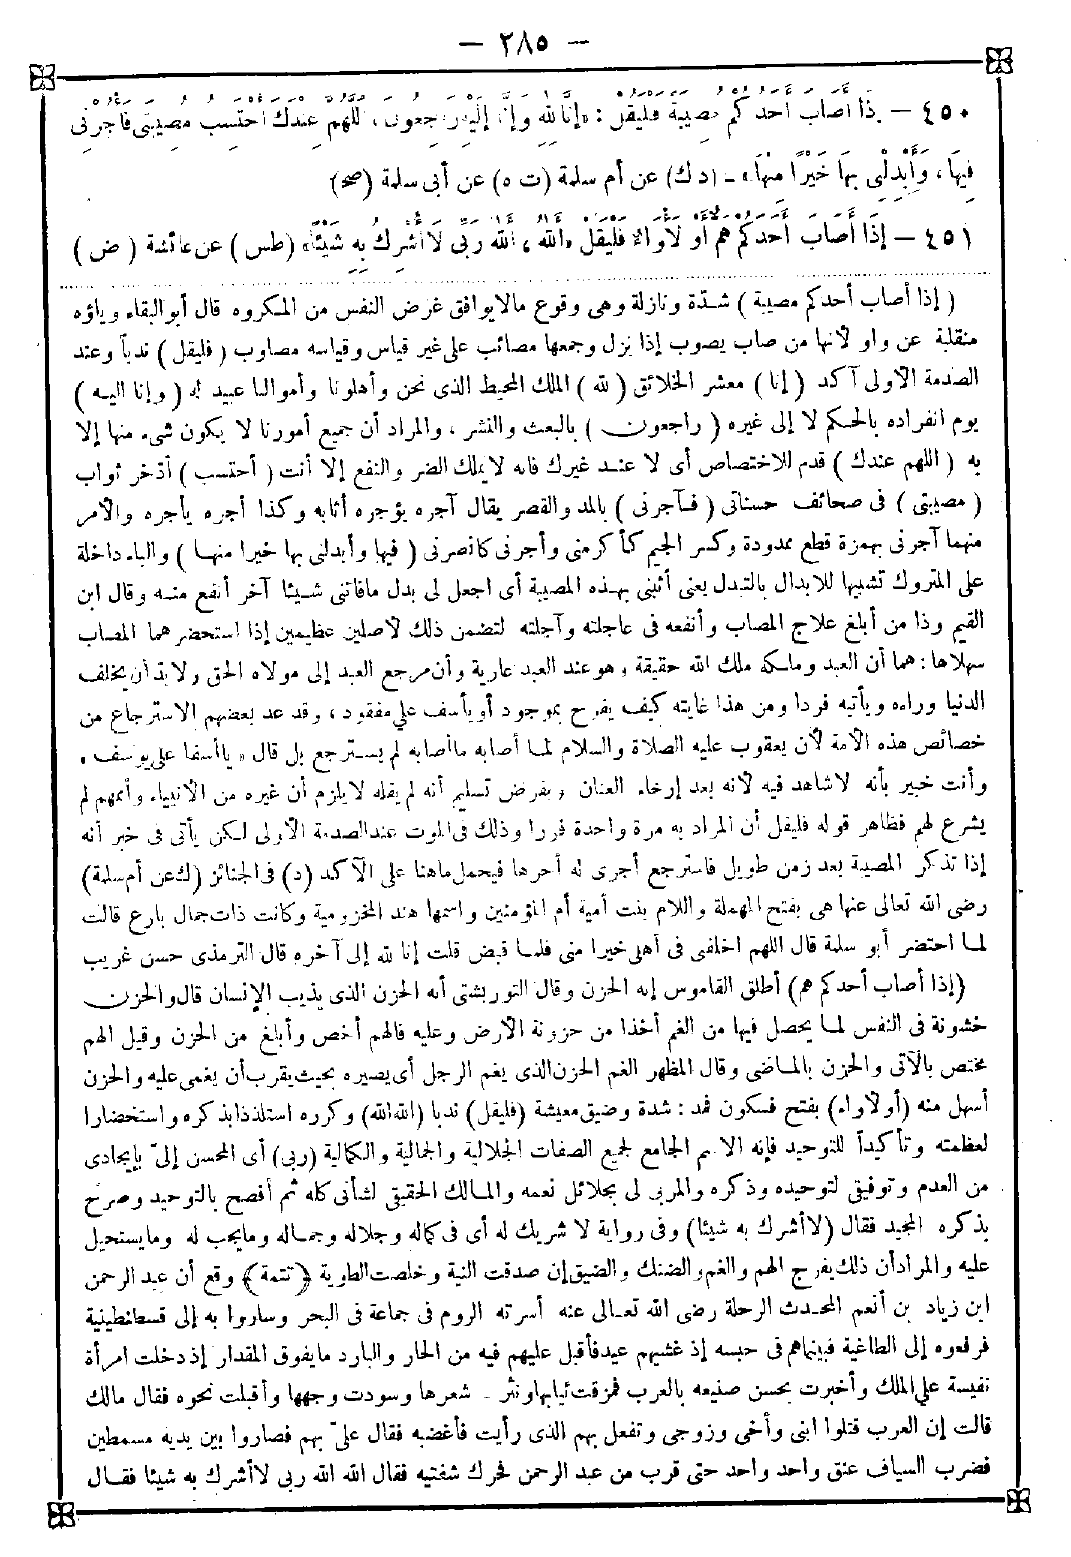 — ٢٨٥ —
٤٥٠ — إِذَا أَصَابَ أَحَدَكُمْ مُصِيبَةٌ فَلْيَقُلْ: «إِنَّا لِلّٰهِ وَإِنَّا إِلَيْهِ رَاجِعُونَ، اَللّٰهُمَّ عِنْدَكَ أَحْتَسِبُ مُصِيبَتِي فَأْجُرْنِي
فِيهَا، وَأَبْدِلْنِي بِهَا خَيْرًا مِنْهَا» - (د ك) عن أم سلمة (ت ه) عن أبى سلمة (صح)
٤٥١ — إِذَا أَصَابَ أَحَدَكُمْ هَمٌّ أَوْ لَأْوَاءُ فَلْيَقُلْ «اَللهُ، اَللهُ رَبِّي لَا أُشْرِكُ بِهِ شَيْئًا» (طس) عن عائشة (ض)
(إذا أصاب أحدكم مصيبة) شدّة ونازلة وهى وقوع مالايوافق غرض النفس من المكروه قال أبو البقاء وياؤه
منقلبة عن واو لأنها من صاب يصوب إذا نزل وجمعها مصائب على غير قياس وقياسه مصاوب (فليقل) ندباً وعند
الصدمة الأولى آكد (إنا) معشر الخلائق (لله) الملك المحيط الذى نحن وأهلونا وأموالنا عبيد له (وإنا اليه)
يوم انفراده بالحكم لا إلى غيره (راجعون) بالبعث والنشر، والمراد أن جميع أمورنا لا يكون شىء منها إلا
به (اللهم عندك) قدم للاختصاص أى لا عند غيرك فانه لايملك الضر والنفع إلا أنت (أحتسب) أذخر ثواب
(مصيبتى) فى صحائف حسناتى (فآجرنى) بالمد والقصر يقال آجره يؤجره أثابه وكذا أجره يأجره والأمر
منهما آجرنى بهمزة قطع ممدودة وكسر الجيم كأكرمنى وأجرنى كانصرنى (فيها وأبدلنى بها خيرا منها) والباء داخلة
على المتروك تشبيها للابدال بالتبدل يعنى أثبنى بهذه المصيبة أى اجعل لى بدل مافاتنى شيئا آخر أنفع منه وقال ابن
القيم وذا من أبلغ علاج المصاب وأنفعه فى عاجلته وآجلته لتضمن ذلك لأصلين عظيمين إذا استحضر هما المصاب
سهلاها: هما أن العبد وماله ملك الله حقيقة، وهو عند العبد عارية وأن مرجع العبد إلى مولاه الحق ولابد أن يخلف
الدنيا وراءه ويأتيه فردا ومن هذا غايته كيف يفرح بموجود أو يأسف على مفقود، وقد عد بعضهم الاسترجاع من
خصائص هذه الأمة لأن يعقوب عليه الصلاة والسلام لما أصابه ماأصابه لم يسترجع بل قال «ياأسفا على يوسف»
وأنت خبير بأنه لاشاهد فيه لأنه بعد إرخاء العنان وبفرض تسليم أنه لم يقله لايلزم أن غيره من الأنبياء وأممهم لم
يشرع لهم فظاهر قوله فليقل أن المراد به مرة واحدة فورا وذلك فى الموت عند الصدمة الأولى لكن يأتى فى خبر أنه
إذا تذكر المصيبة بعد زمن طويل فاسترجع أجرى له أجرها فيحمل ماهنا على الآكد (د) فى الجنائز (ك عن أم سلمة)
رضى الله تعالى عنها هى بفتح المهملة واللام بنت أمية أم المؤمنين واسمها هند المخزومية وكانت ذات جمال بارع قالت
لما احتضر أبو سلمة قال اللهم اخلفنى فى أهلى خيرا منى فلما قبض قلت إنا لله إلى آخره قال الترمذى حسن غريب
(إذا أصاب أحدكم هم) أطلق القاموس إنه الحزن وقال التوربشتى أنه الحزن الذى يذيب الإنسان قال والحزن
خشونة فى النفس لما يحصل فيها من الغم أخذا من حزونة الأرض وعليه فالهم أخص وأبلغ من الحزن وقيل الهم
مختص بالآتى والحزن بالماضى وقال المظهر الغم الحزن الذى يغم الرجل أى يصيره بحيث يقرب أن يغمى عليه والحزن
أسهل منه (أو لأواء) بفتح فسكون فمد: شدة وضيق معيشة (فليقل) ندبا (الله الله) وكرره استلذاذا بذكره واستحضارا
لعظمته وتأكيداً للتوحيد فإنه الاسم الجامع لجميع الصفات الجلالية والجمالية والكمالية (ربى) أى المحسن إلىّ بإيجادى
من العدم وتوفيقى لتوحيده وذكره والمربى لى بجلائل نعمه والمالك الحقيقى لشأنى كله ثم أفصح بالتوحيد وصرح
بذكره المجيد فقال (لاأشرك به شيئا) وفى رواية لا شريك له أى فى كماله وجلاله وجماله ومايجب له ومايستحيل
عليه والمراد أن ذلك يفرج الهم والغم والضنك والضيق إن صدقت النية وخلصت الطوية (تتمة) وقع أن عبد الرحمن
ابن زياد بن أنعم المحدث الرحلة رضى الله تعالى عنه أسرته الروم فى جماعة فى البحر وساروا به إلى قسطنطينية
فرفعوه إلى الطاغية فبينماهم فى حبسه إذ غشيهم عيد فأقبل عليهم فيه من الحار والبارد مايفوق المقدار إذ دخلت امرأة
نفيسة على الملك وأخبرت بحسن صنيعه بالعرب فمزقت ثيابها ونثرت شعرها وسودت وجهها وأقبلت نحوه فقال مالك
قالت إن العرب قتلوا ابنى وأخى وزوجى وتفعل بهم الذى رأيت فأغضبه فقال علىّ بهم فصاروا بين يديه مسمطين
فضرب السياف عنق واحد واحد حتى قرب من عبد الرحمن فحرك شفتيه فقال الله الله ربى لاأشرك به شيئا فقال